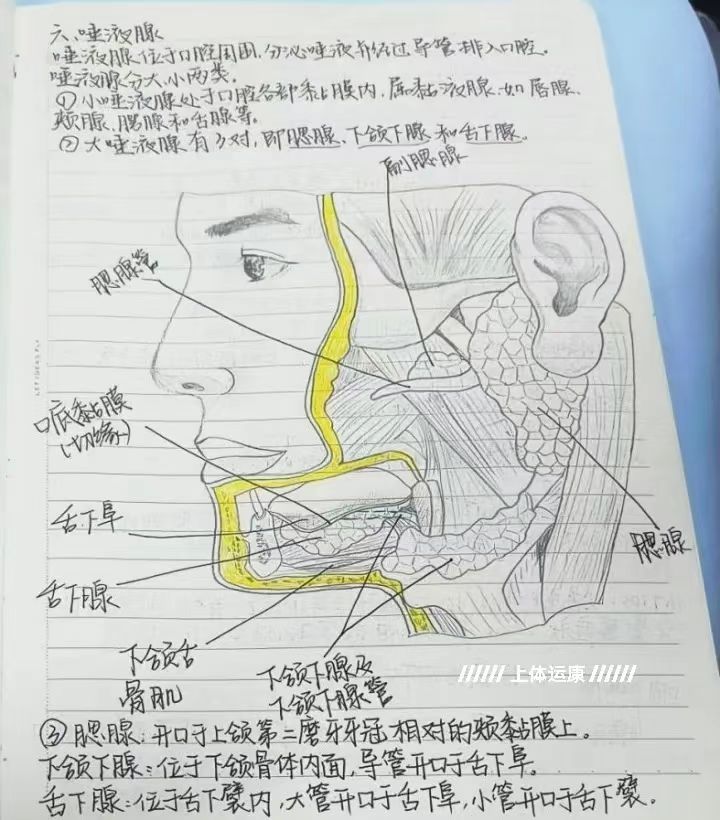 六、唾液腺
唾液腺位于口腔周围,分泌唾液并经过导管排入口腔。
唾液腺分大、小两类。
①小唾液腺处于口腔各部黏膜内,属黏液腺,如唇腺、
颊腺、腭腺和舌腺等。
②大唾液腺有3对,即腮腺、下颌下腺和舌下腺。
副腮腺
腮腺管
口底黏膜
(切缘)
舌下阜
舌下腺
腮腺
下颌舌
骨肌
下颌下腺及
下颌下腺管
////// 上体运康 //////
③腮腺:开口于上颌第二磨牙牙冠相对的颊黏膜上。
下颌下腺:位于下颌骨体内面,导管开口于舌下阜。
舌下腺:位于舌下襞内,大管开口于舌下阜,小管开口于舌下襞。